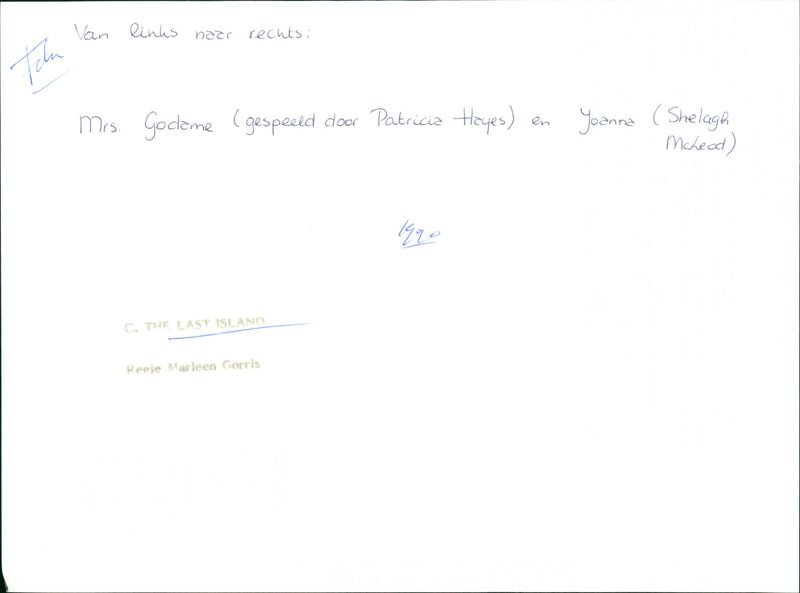 Van links naar rechts:
Mrs. Godame (gespeeld door Patricia Hayes) en Yoanna (Shelagh
McLeod)
1990
C. THE LAST ISLAND
Regie Marleen Gorris